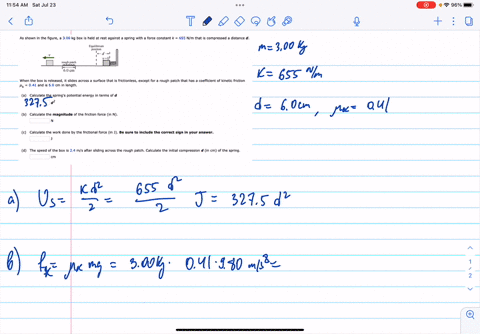 11:54 AM Sat Jul 23
96%
As shown in the figure, a 3.00 kg box is held at rest against a spring with a force constant k = 655 N/m that is compressed a distance d.
Equilibrium
position
rough patch
When the box is released, it slides across a surface that is frictionless, except for a rough patch that has a coefficient of kinetic friction
μk = 0.41 and is 6.0 cm in length.
(a) Calculate the spring's potential energy in terms of d
327.5
(b) Calculate the magnitude of the friction force (in N).
N
(c) Calculate the work done by the frictional force (in J). Be sure to include the correct sign in your answer.
J
(d) The speed of the box is 2.4 m/s after sliding across the rough patch. Calculate the initial compression d (in cm) of the spring.
cm
m = 3.00 kg
K = 655 N/m
d = 6.0 cm, μk = 0.41
a) Us = Kd²/2 = 655 d²/2 J = 327.5 d²
b) fk = μk mg = 3.00 kg · 0.41 · 9.80 m/s² =
1
2